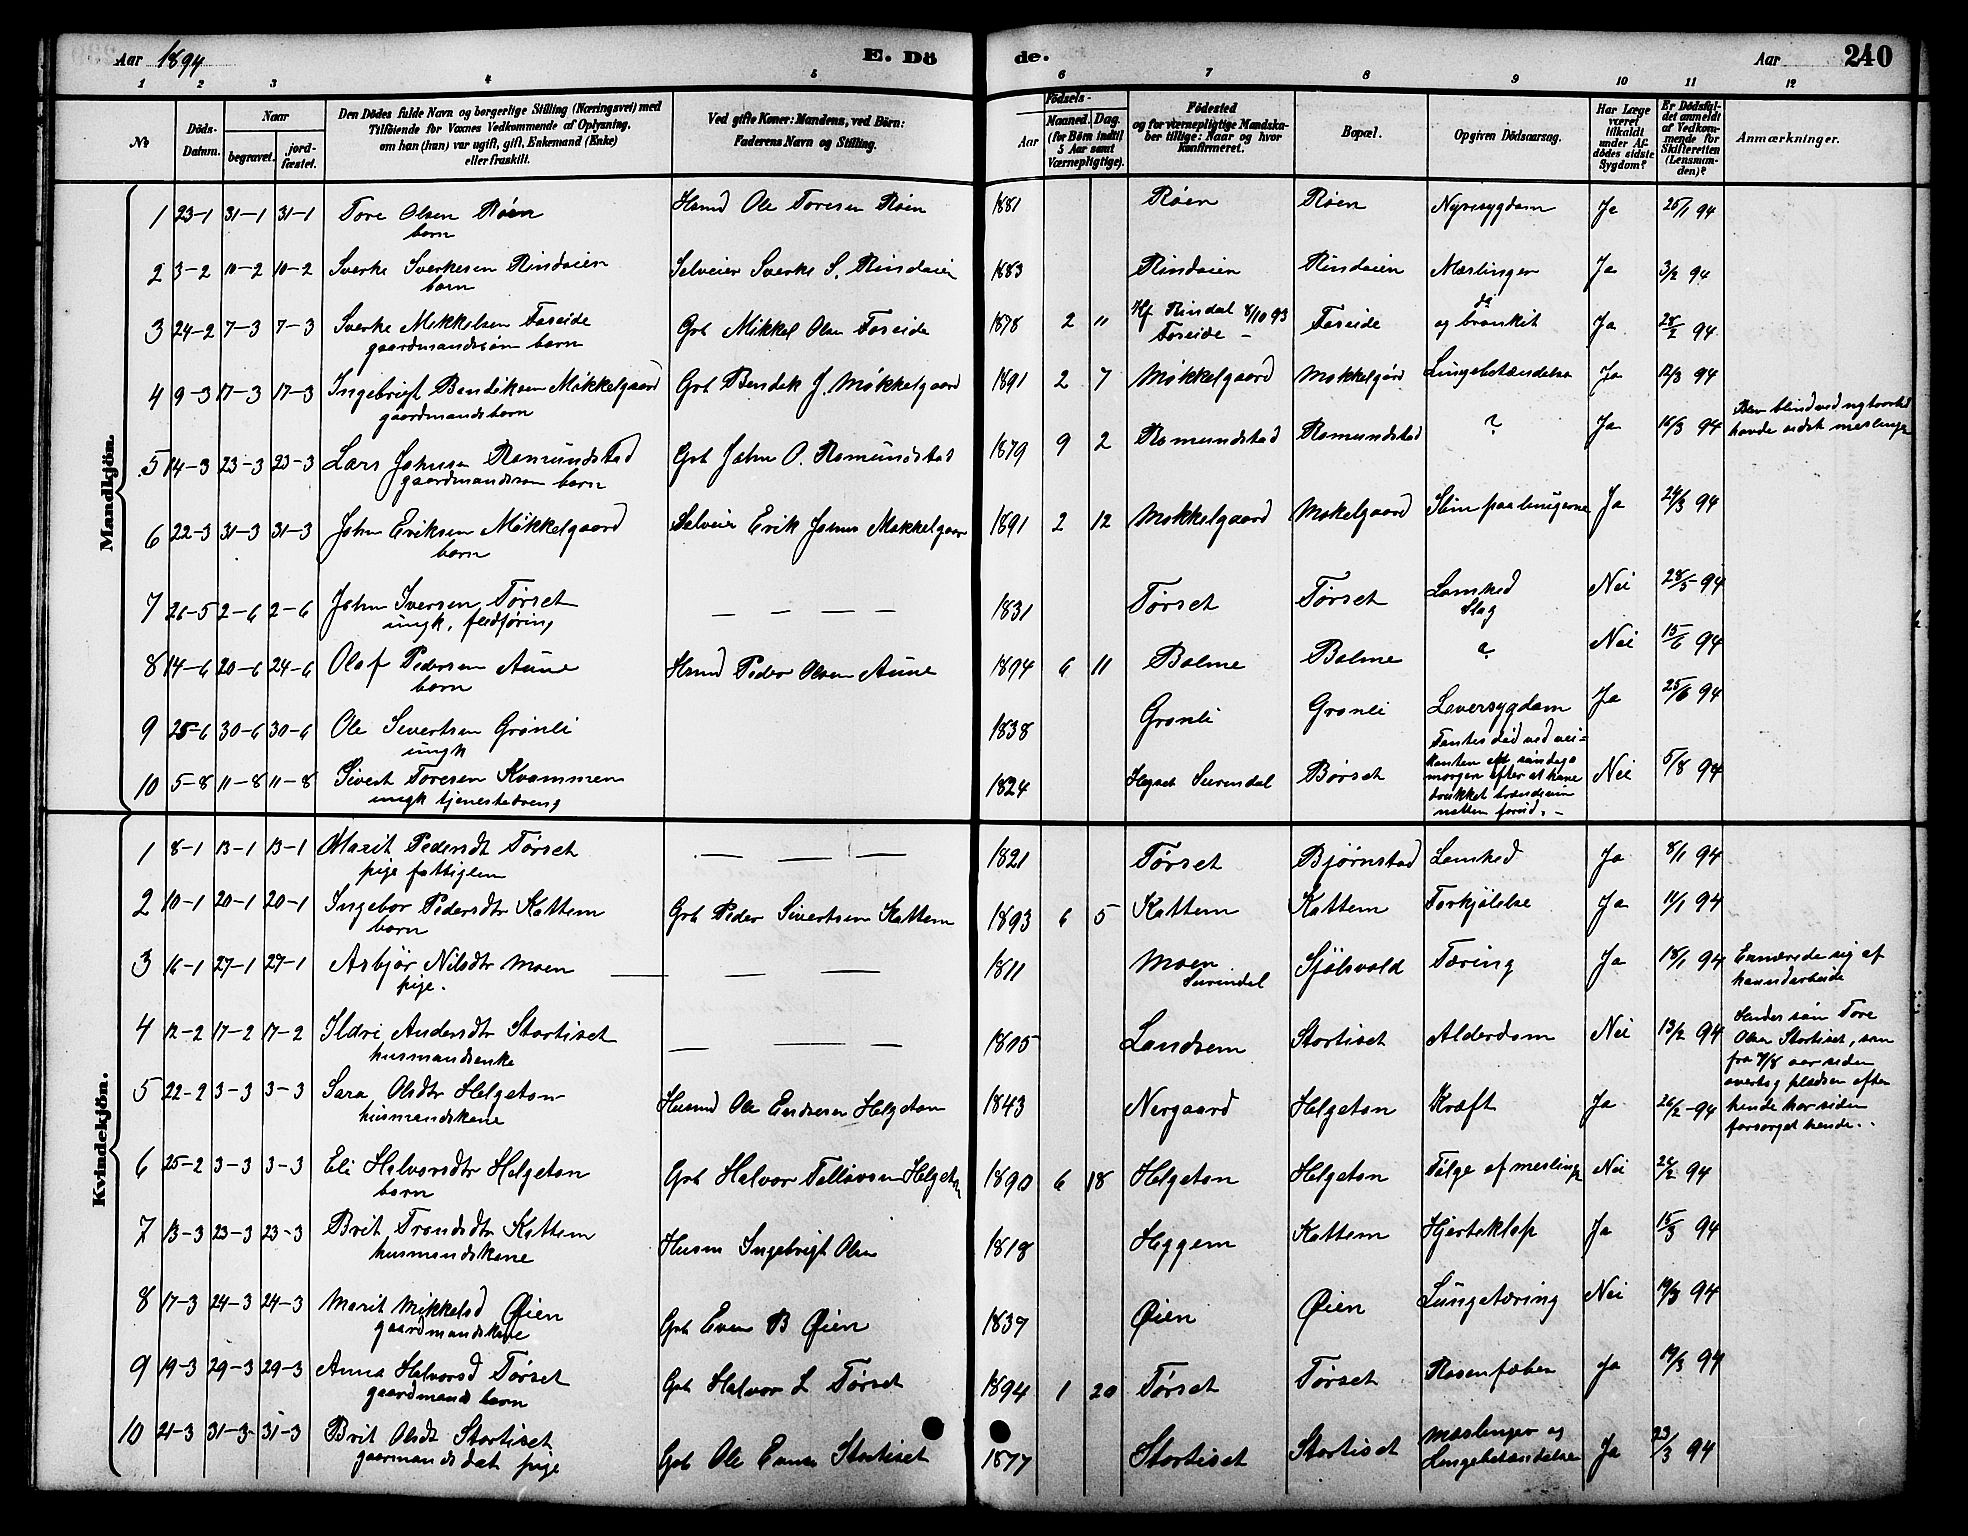 Aar 1894 E. Dö de. Aar 240
1 2 3 4 5 6 7 8 9 10 11 12
№ Döds-Datum. Naar begravet. jordfæstet. Den Dödes fulde Navn og borgerlige Stilling (Næringsvei) med Tilföiende for Voxnes Vedkommende af Oplysning, om han (hun) var ugift, gift, Enkemand (Enke) eller fraskilt. Ved gifte Koner: Mandens, ved Börn: Faderens Navn og Stilling. Födsels- Aar Maaned. Dag. (for Börn indtil 5 Aar samt Værnepligtige). Födested og for værnepligtige Mandskaber tillige: Naar og hvor Konfirmeret. Bopæl. Opgiven Dödsaarsag. Har Læge været tilkaldt under Afdödes sidste Sygdom? Er Dödsfaldet anmeldt af Vedkommende for Skifteretten (Lensmanden)? Anmærkninger.
Mandkjön.
1 23-1 31-1 31-1 Tore Olsen Røen Hsmd Ole Toresen Røen 1881 Røen Røen Nyresygdom Ja 25/1 94
barn
2 3-2 10-2 10-2 Sverke Sverkesen Rindøien Selveier Sverke S. Rindøien 1883 Rindøien Rindøien Mæslinger Ja 3/2 94
barn
3 24-2 7-3 7-3 Sverke Mikkelsen Foseide Grb Mikkel Olsen Foseide 1878 2 " Kf Rindal 8/10 93 Foseide - Foseide do og bronkit Ja 28/2 94
gaardmandssøn barn
4 9-3 17-3 17-3 Ingebrigt Bendiksen Møkkelgaard Grb Bendik J. Møkkelgaard 1891 2 7 Møkkelgaard Møkkelgård Lungebetændelse Ja 12/3 94
gaardmandsbarn
5 14-3 23-3 23-3 Lars Johnsen Romundstad Grb John O. Romundstad 1879 9 2 Romundstad Romundstad ? Ja 16/3 94 Blev blind ved havde sidst meslinger
gaardmandssøn barn
6 22-3 31-3 31-3 John Eriksen Møkkelgaard Selveier Erik Johns Møkkelgaard 1891 2 12 Møkkelgaard Møkelgaard Slim paa lungerne Ja 24/3 94
barn
7 26-5 2-6 2-6 John Iversen Tørset — — — — 1831 Tørset Tørset Lamhed Slag Nei 28/5-94
ungk, fledføring
8 14-6 20-6 24-6 Olaf Pedersen Aune Hsmd Peder Olsen Aune 1894 6 11 Bolme Bolme ? Nei 15/6 94
barn
9 25-6 30-6 30-6 Ole Sivertsen Grønli 1838 Grønli Grønli Leversygdom Ja 25/6 94
ungk
10 5-8 11-8 11-8 Sivert Toresen Kvammen 1824 Surendal Børset Fantes død ved veikanten søndags morgen efter at have drukket brændevin natten forud. - Nei 5/8 94
ungk tjenestedreng
Kvindekjön.
1 8-1 13-1 13-1 Marit Pedersdt Tørset — — — 1821 Tørset Bjørnstad Lamhed Ja 8/1 94
pige fattiglem
2 10-1 20-1 20-1 Ingebor Pedersdtr Kattem Grb Peder Sivertsen Kattem 1893 6 5 Kattem Kattem Forkjølelse Ja 11/1 94
barn
3 16-1 27-1 27-1 Asbjør Nilsdtr Moen — — — 1811 Moen Surendal Sjølsvold Tæring Ja 18/1 94 Ernærede sig af haandarbeide
pige.
4 12-2 17-2 17-2 Ildri Andersdtr Stortiset — — — 1805 Landsem Stortiset Alderdom Nei 13/2 94 Hendes søn Tore Olsen Stortiset, som fra 7/8 aar siden overtog pladsen efter hende har siden forsørget hende. . .
husmandsenke
5 22-2 3-3 3-3 Sara Olsdtr Helgeton Husmd Ole Endresen Helgeton 1843 Nergaard Helgeton Kræft Ja 26/2-94
husmandskone
6 25-2 3-3 3-3 Eli Halvorsdtr Helgeton Grb Halvor Tollovsen Helgeton 1890 6 18 Helgeton Helgeton Følge af meslinger Nei 26/2 94
barn
7 13-3 23-3 23-3 Brit Trondsdtr Kattem Husm Ingebrigt Olsen 1818 Heggem Kattem Hjerteklap Ja 15/3 94
husmandskone
8 17-3 24-3 24-3 Marit Mikkelsd Øien Grb Even B Øien 1837 Øien Øien Lungetæring Nei 19/3 94
gaardmandskone
9 19-3 29-3 29-3 Anna Halvorsd Tørset Grb Halvor L Tørset 1894 1 20 Tørset Tørset Rosenfeber Ja 19/3 94
gaardmands barn
10 21-3 31-3 31-3 Brit Olsdt Stortiset Grb Ole Evens Stortiset 1877 Stortiset Stortiset Mæslinger og Lungebetændelse Ja 23/3 94
gaarmands dat pige